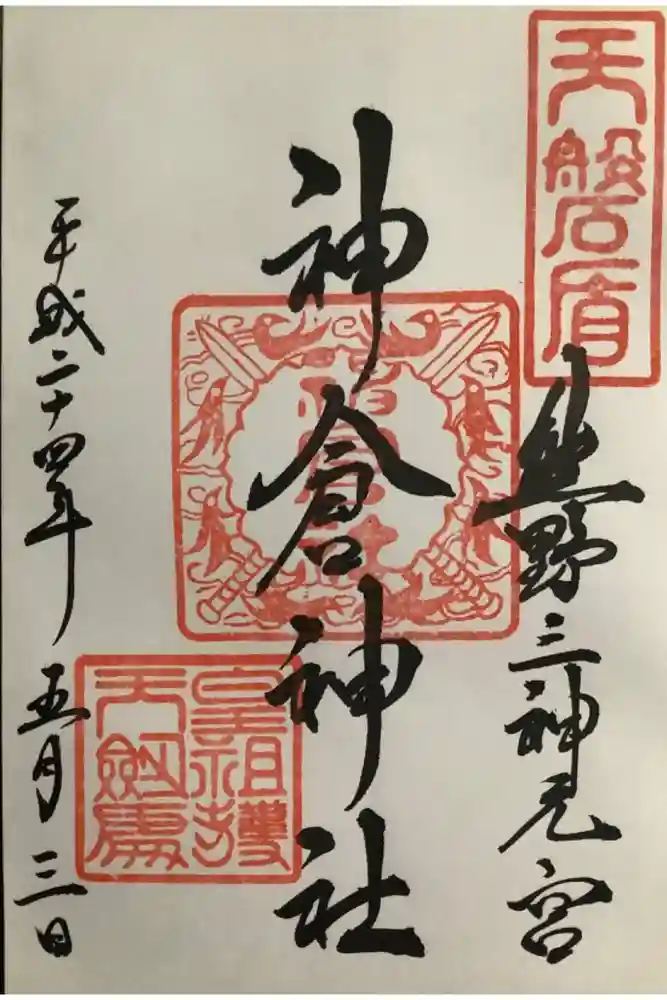 天磐盾
熊野三神元宮
神倉神社
神倉神社
皇祖護
天劔處
平成二十四年五月三日